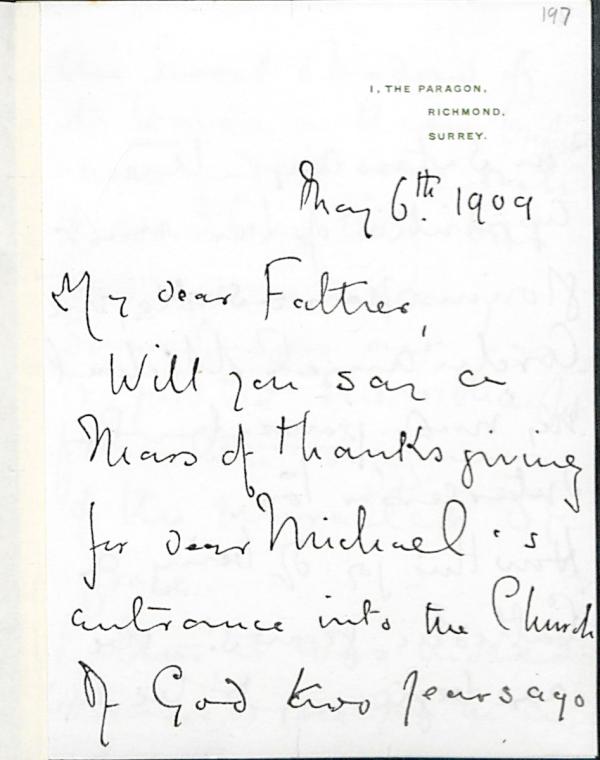 197
1, THE PARAGON,
RICHMOND,
SURREY.
May 6th. 1909
My dear Father,
Will you say a
Mass of thanksgiving
for dear Michael's
entrance into the Church
of God two years ago